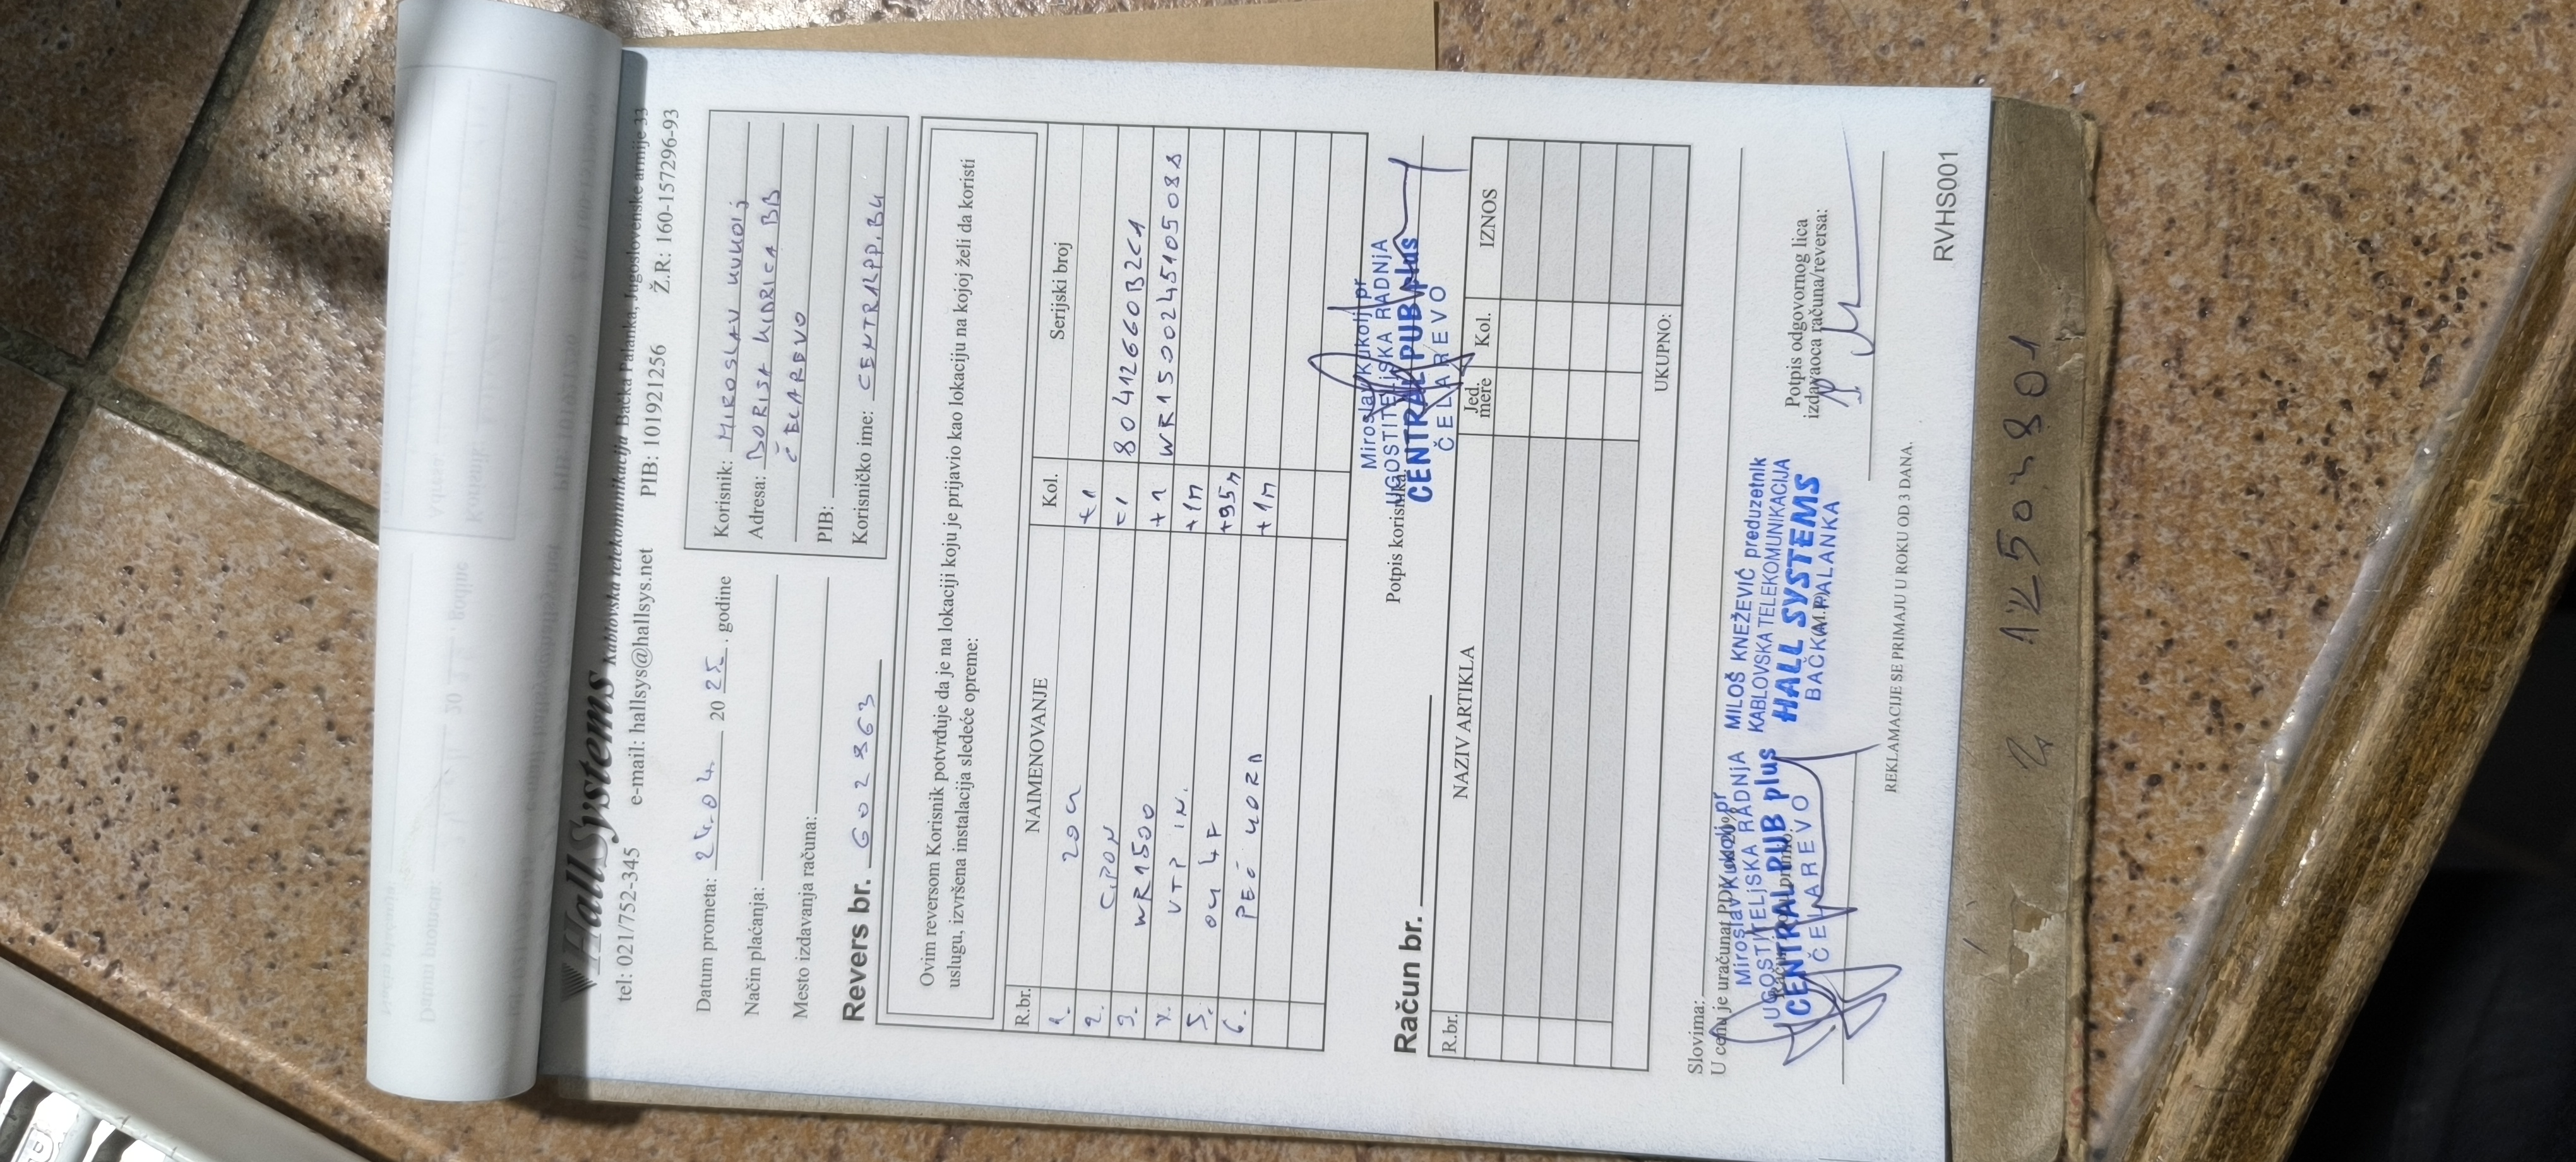 HallSystems Kablovska telekomunikacija Bačka Palanka, Jugoslovenske armije 33
tel: 021/752-345 e-mail: hallsys@hallsys.net PIB: 101921256 Ž.R: 160-157296-93
Datum prometa: 24.04. 2025. godine
Način plaćanja:
Mesto izdavanja računa:
Revers br. 602963
Korisnik: MIROSLAV KUKOLJ
Adresa: BORISA KIDRIČA BB
ČELAREVO
PIB:
Korisničko ime: CENTRALPP.B4
Ovim reversom Korisnik potvrđuje da je na lokaciji koju je prijavio kao lokaciju na kojoj želi da koristi
uslugu, izvršena instalacija sledeće opreme:
R.br. NAIMENOVANJE Kol. Serijski broj
1. ZOU +1
2. GPON +1 80412660B2C1
3. WR1500 +1 WR1500245105088
4. UTP IN. +1m
5. OU 4F +95m
6. PEČ KORD +1m
Potpis korisnika:
Miroslav Kukolj pr
UGOSTITELJSKA RADNJA
CENTRAL PUB plus
ČELAREVO
Račun br.
R.br. NAZIV ARTIKLA Jed. mere Kol. IZNOS
UKUPNO:
Slovima:
U cenu je uračunat PDV
Miroslav Kukolj pr
UGOSTITELJSKA RADNJA
CENTRAL PUB plus
ČELAREVO
MILOŠ KNEŽEVIĆ preduzetnik
KABLOVSKA TELEKOMUNIKACIJA
HALL SYSTEMS
BAČKA PALANKA
Potpis odgovornog lica
izdavaoca računa/reversa:
REKLAMACIJE SE PRIMAJU U ROKU OD 3 DANA.
RVHS001